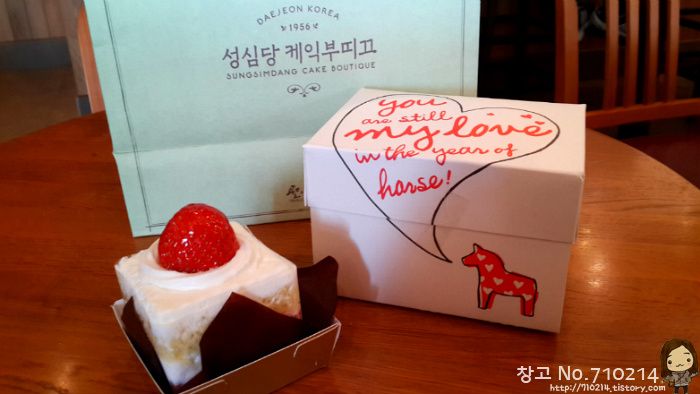 DAEJEON KOREA
1956
성심당 케익부띠끄
SUNGSIMDANG CAKE BOUTIQUE
you
are still
my love
in the year of
horse!
창고 No.710214
http://710214.tistory.com